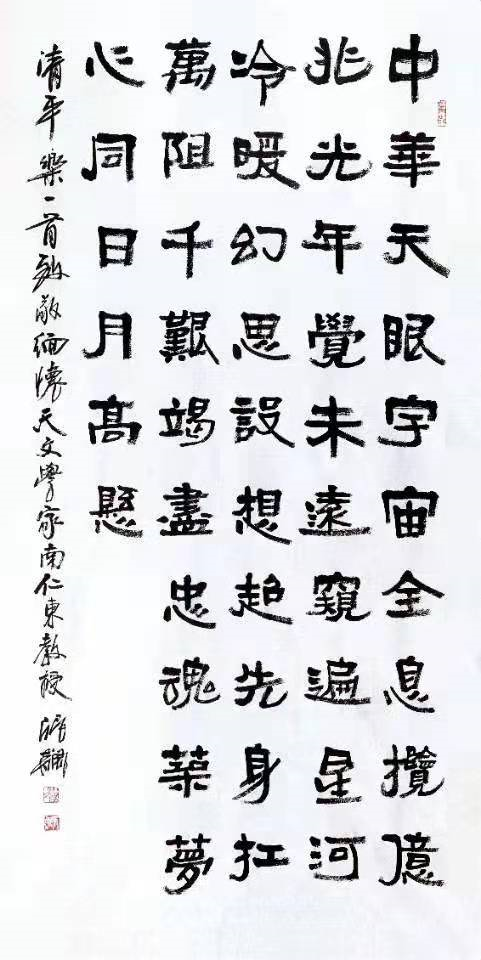 中華天眼宇宙全息攬億
兆光年覺未遠窺遍星河
冷暖幻思設想超先身扛
萬阻千艱竭盡忠魂築夢
心同日月高懸
清平樂一首致敬緬懷天文學家南仁東教授